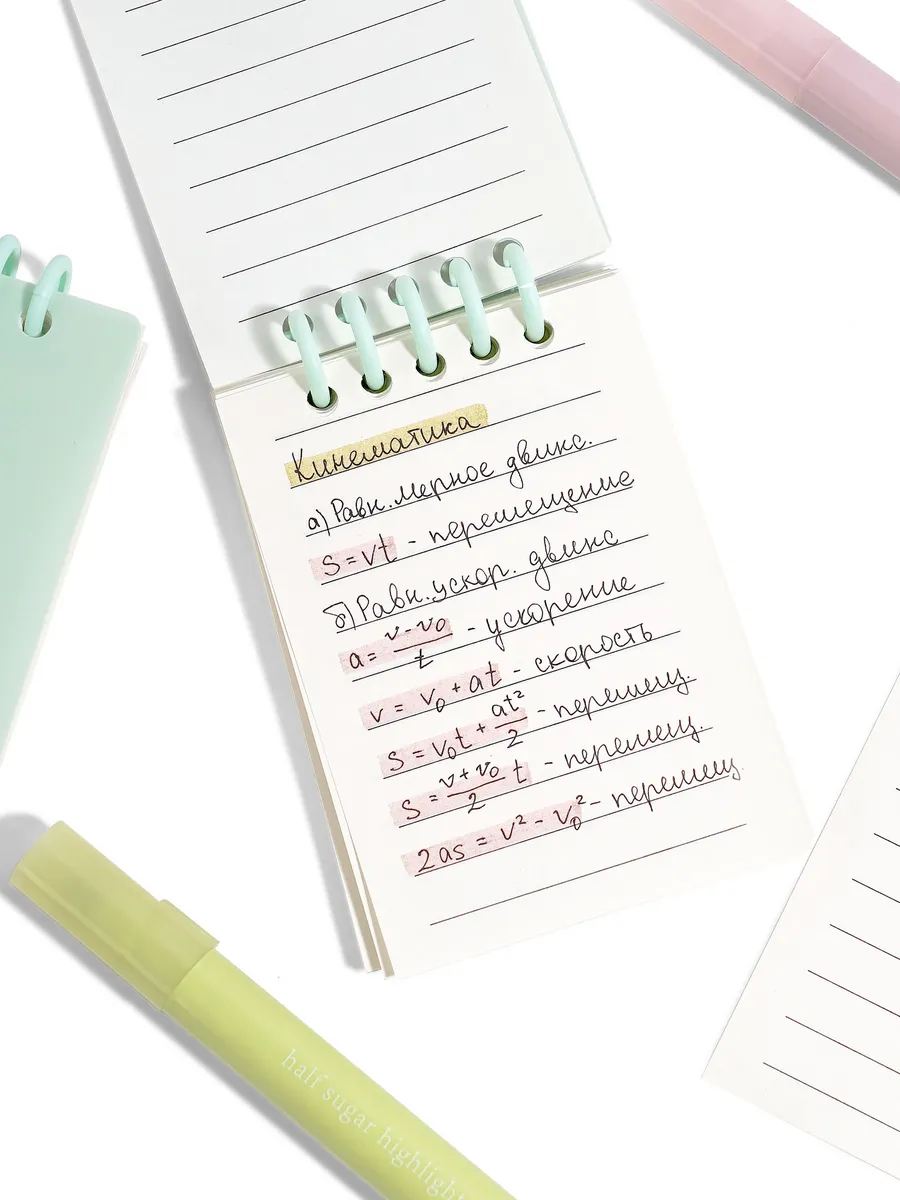 Кинематика
а) Равн.мерное движ.
S = vt - перемещение
б) Равн.ускор. движ
a = (v - v₀)/t - ускорение
v = v₀ + at - скорость
S = v₀t + at²/2 - перемещ.
S = (v + v₀)/2 t - перемещ.
2as = v² - v₀² - перемещ.
half sugar highlight